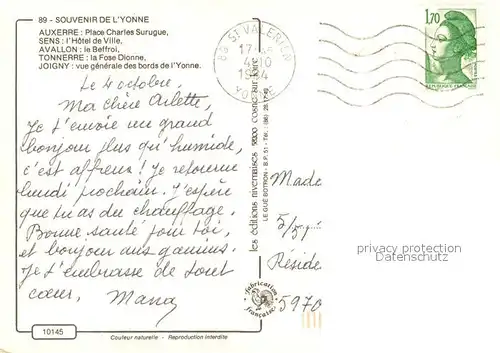 89 - SOUVENIR DE L'YONNE
AUXERRE : Place Charles Surugue,
SENS : l'Hôtel de Ville,
AVALLON : le Beffroi,
TONNERRE : la Fose Dionne,
JOIGNY : vue générale des bords de l'Yonne.
Le 4 octobre.
Ma chère Arlette,
Je t'envoie un grand
bonjour plus qu'humide,
c'est affreux ! Je retourne
lundi prochain. J'espère
que tu as du chauffage.
Bonne santé pour toi,
et bonjour aux gamins.
Je t'embrasse de tout
cœur, Mana
10145
Couleur naturelle - Reproduction interdite
89 ST VALERIEN
4-10
YONNE
1,70
REPUBLIQUE FRANÇAISE
les éditions nivernaises 58200 cosne-sur-loire
LE GUE BOTRON - B.P. 51 - Tél.
Fabrication Française
Made
Réside
5970
privacy protection
Datenschutz